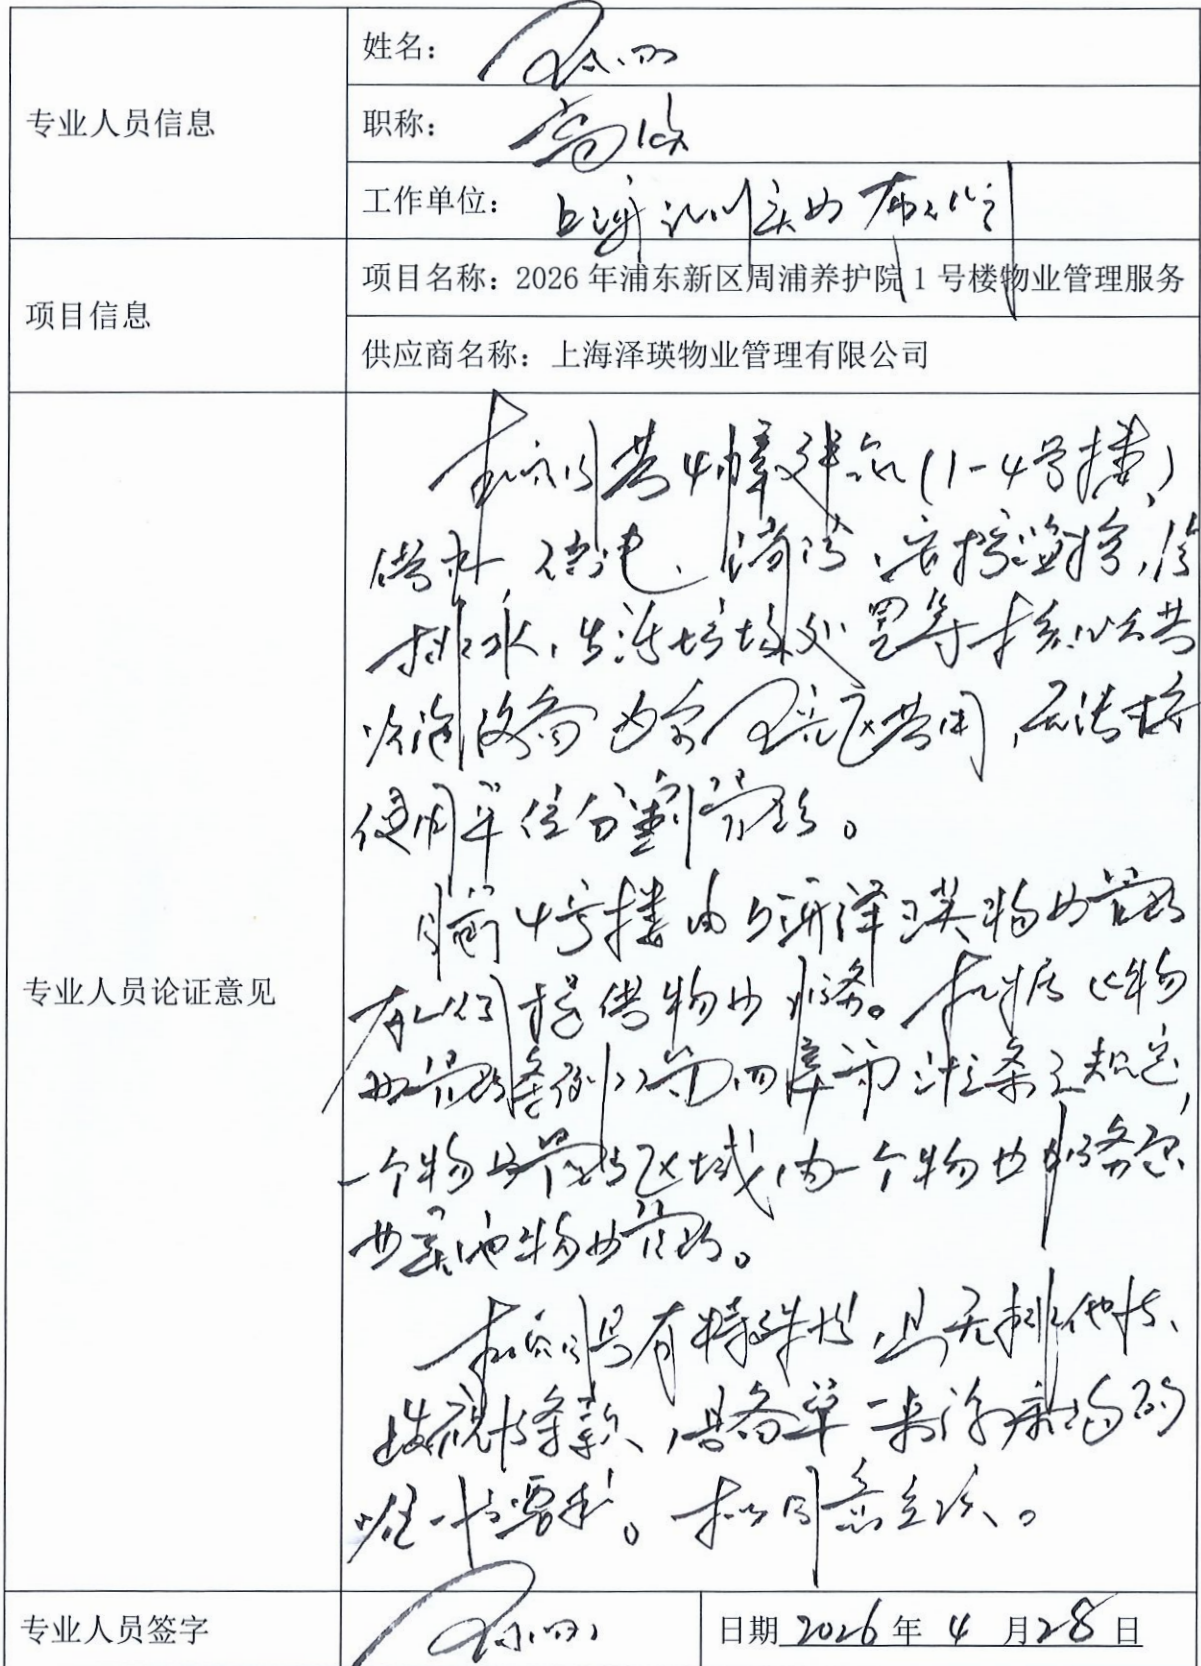 专业人员信息
姓名：
职称：高级
工作单位：上海
项目信息
项目名称：2026 年浦东新区周浦养护院 1 号楼物业管理服务
供应商名称：上海泽瑛物业管理有限公司
专业人员论证意见
本项目共4幢建筑（1-4号楼），
供水、供电、消防、安控监控、
排水、生活垃圾处置等核心公共
设施设备为全院区共用，无法按
使用单位分割管理。
目前4号楼由上海泽瑛物业管理
有限公司提供物业服务。根据《物
业管理条例》第四章第 条之规定，
一个物业管理区域由一个物业服务企
业实施物业管理。
本项目具有特殊性，且无排他性、
歧视性条款，具备单一来源采购的
唯一性要求。拟同意
专业人员签字
日期 2026 年 4 月 28 日